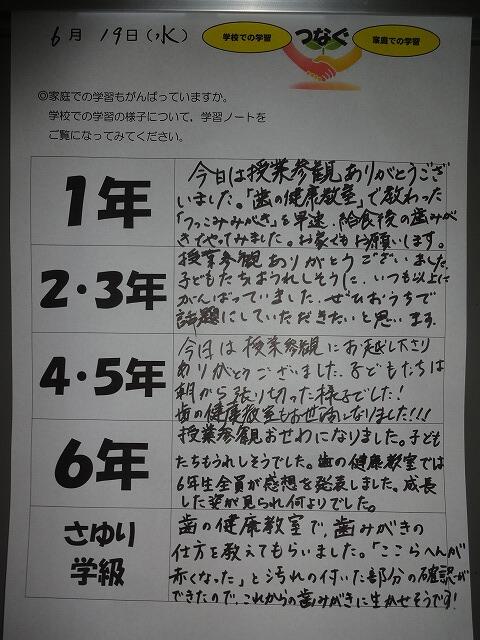 6月 19日(水)
学校での学習
つなぐ
家庭での学習
◎家庭での学習もがんばっていますか。
学校での学習の様子について、学習ノートを
ご覧になってみてください。
1年
今日は授業参観ありがとうござ
いました。「歯の健康教室」で教わった
「つっこみみがき」を早速、給食後の歯みが
きでやってみました。お家でもお願いします。
2・3年
授業参観ありがとうございました。
子どもたちはうれしそうに、いつも以上に
がんばっていました。ぜひおうちで
話題にしていただきたいと思います。
4・5年
今日は授業参観にお越し下さり
ありがとうございました。子どもたちは
朝から張り切った様子でした!
歯の健康教室もお世話になりました!!!
6年
授業参観おせわになりました。子ども
たちもうれしそうでした。歯の健康教室では
6年生全員が感想を発表しました。成長
した姿が見られ何よりでした。
さゆり
学級
歯の健康教室で、歯みがきの
仕方を教えてもらいました。「ここらへんが
赤くなった」と汚れの付いた部分の確認が
できたので、これからの歯みがきに生かせそうです!